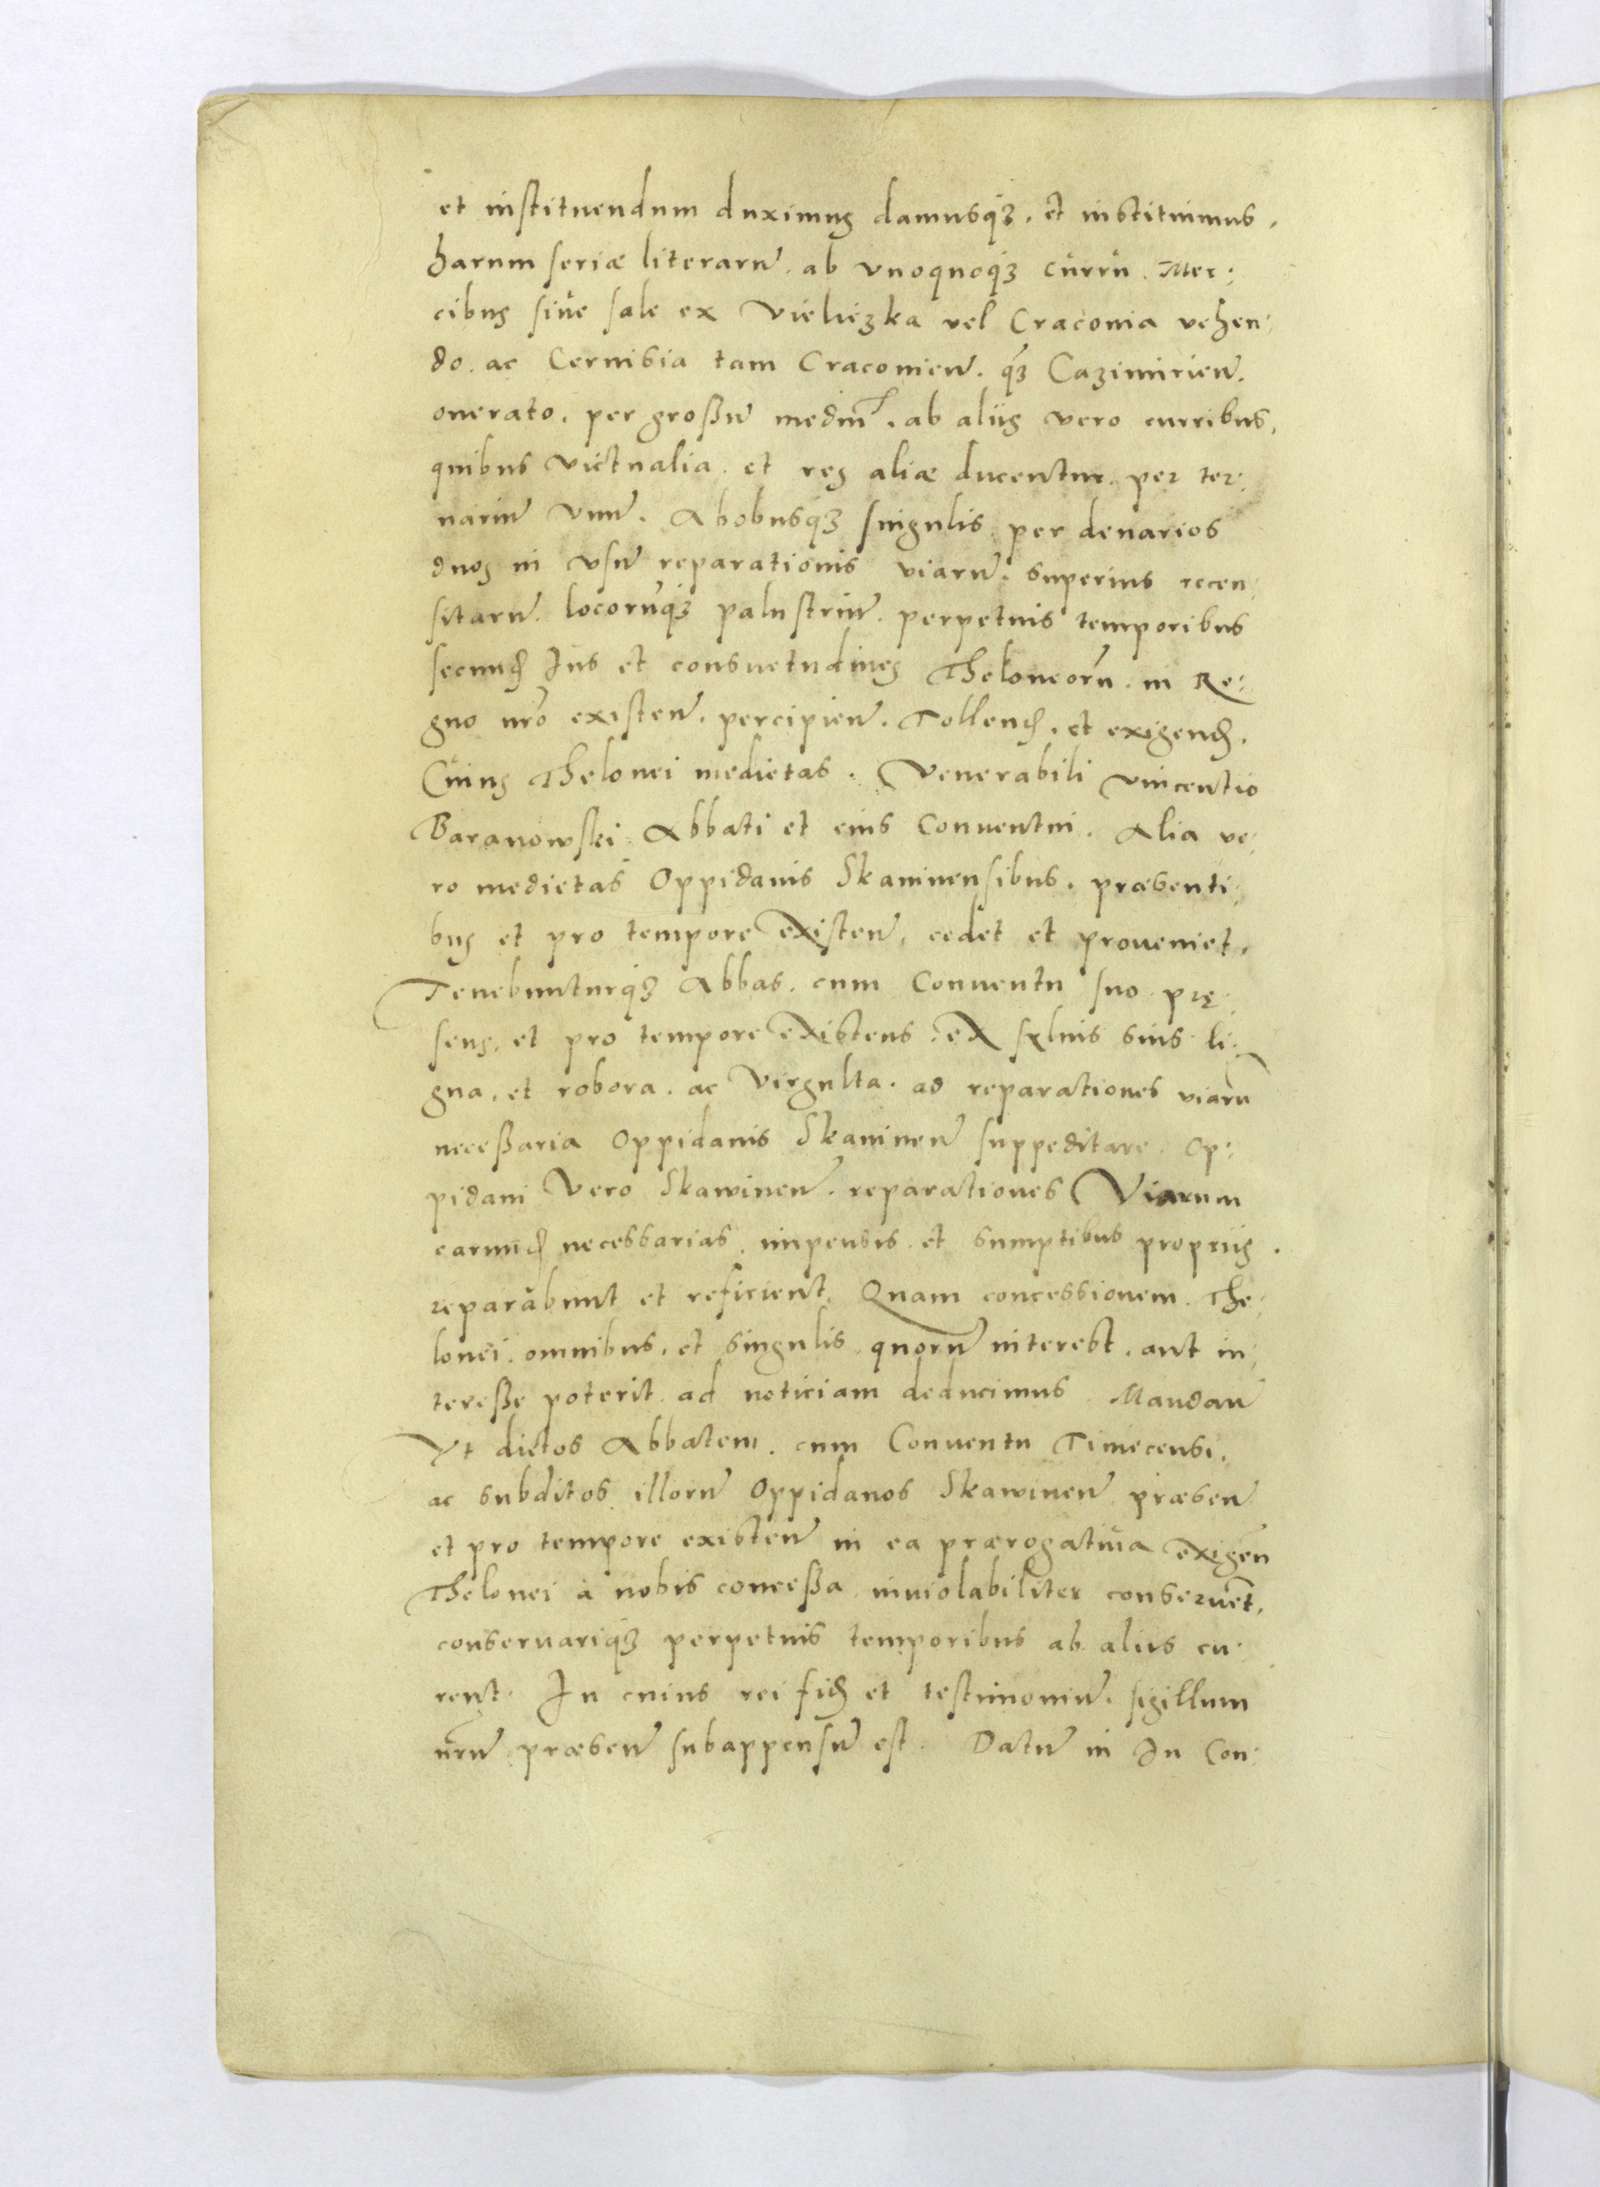 et instituendum duximus damusq̃ʒ. et instituimus.
harum seriæ literarũ. ab vnoquoq̃ʒ curru. Mer:
cibus siue sale ex Vieliczka vel Craconia vehen:
do. ac Ceruisia tam Craconieñ. q̃ʒ Cazimirieñ.
onerato. per großũ mediũ. ab alijs vero curribus.
quibus victualia. et res aliæ ducentur. per ter:
nariũ vnũ. Abobusq̃ʒ singulis per denarios
duos in vsũ reparationis viarũ. superius recen:
sitarũ. locorũq̃ʒ palustriũ. perpetuis temporibus
secund̃ Ius et consuetudines Theloneorũ. in Re:
gno nr̃o existeñ. percipieñ. Tollend̃. et exigend̃.
Cuius Thelonei medietas. Venerabili Vincentio
Baranowski Abbati et eius Conuentui. Alia ve:
ro medietas Oppidanis Skauinensibus. præsenti:
bus et pro tempore existeñ. cedet et proueniet.
Tenebunturq̃ʒ Abbas. cum Conuentu suo prę:
sens. et pro tempore existens. ex syluis suis li:
gna. et robora. ac virgulta. ad reparationes viarũ
necessaria Oppidanis Skauineñ suppeditare. Op:
pidani Vero Skawineñ. reparationes Viarum
earund̃ necessarias. impensis. et sumptibus proprijs.
reparabunt et reficient. Quam concessionem The:
lonei. omnibus. et singulis quorũ interest. aut in:
tereße poterit ad noticiam deducimus Mandañ
Vt dictos Abbatem. cum Conuentu Tinecensi.
ac subditos illorũ Oppidanos Skawineñ præseñ
et pro tempore existeñ in ea prærogatiua exigeñ
Thelonei à nobis conceßa inuiolabiliter conseruẽt.
conseruariq̃ʒ perpetuis temporibus ab alijs cu:
rent. In cuius rei fid̃ et testimoniũ. sigillum
nr̃ũ præseñ subappensũ est. Datũ in In Con: